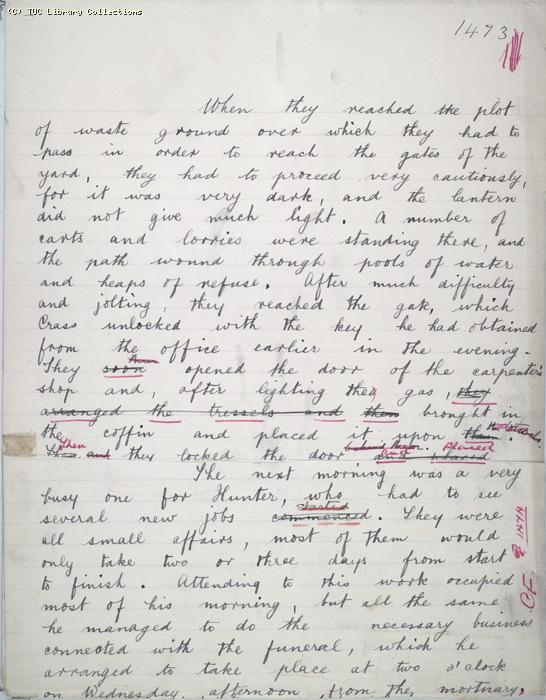 (C) TUC Library Collections
1473
When they reached the plot
of waste ground over which they had to
pass in order to reach the gates of the
yard, they had to proceed very cautiously,
for it was very dark, and the lantern
did not give much light. A number of
carts and lorries were standing there, and
the path wound through pools of water
and heaps of refuse. After much difficulty
and jolting, they reached the gate, which
Crass unlocked with the key he had obtained
from the office earlier in the evening.
They soon opened the door of the carpenter's
shop and, after lighting the gas, they
arranged the tressels and then brought in
the coffin and placed it upon them.
Then and they locked the door and placed
The next morning was a very
busy one for Hunter, who had to see
started
several new jobs commenced. They were
all small affairs, most of them would
only take two or three days from start
to finish. Attending to this work occupied
most of his morning, but all the same
he managed to do the necessary business
connected with the funeral, which he
arranged to take place at two o'clock
on Wednesday afternoon, from the mortuary,
1474